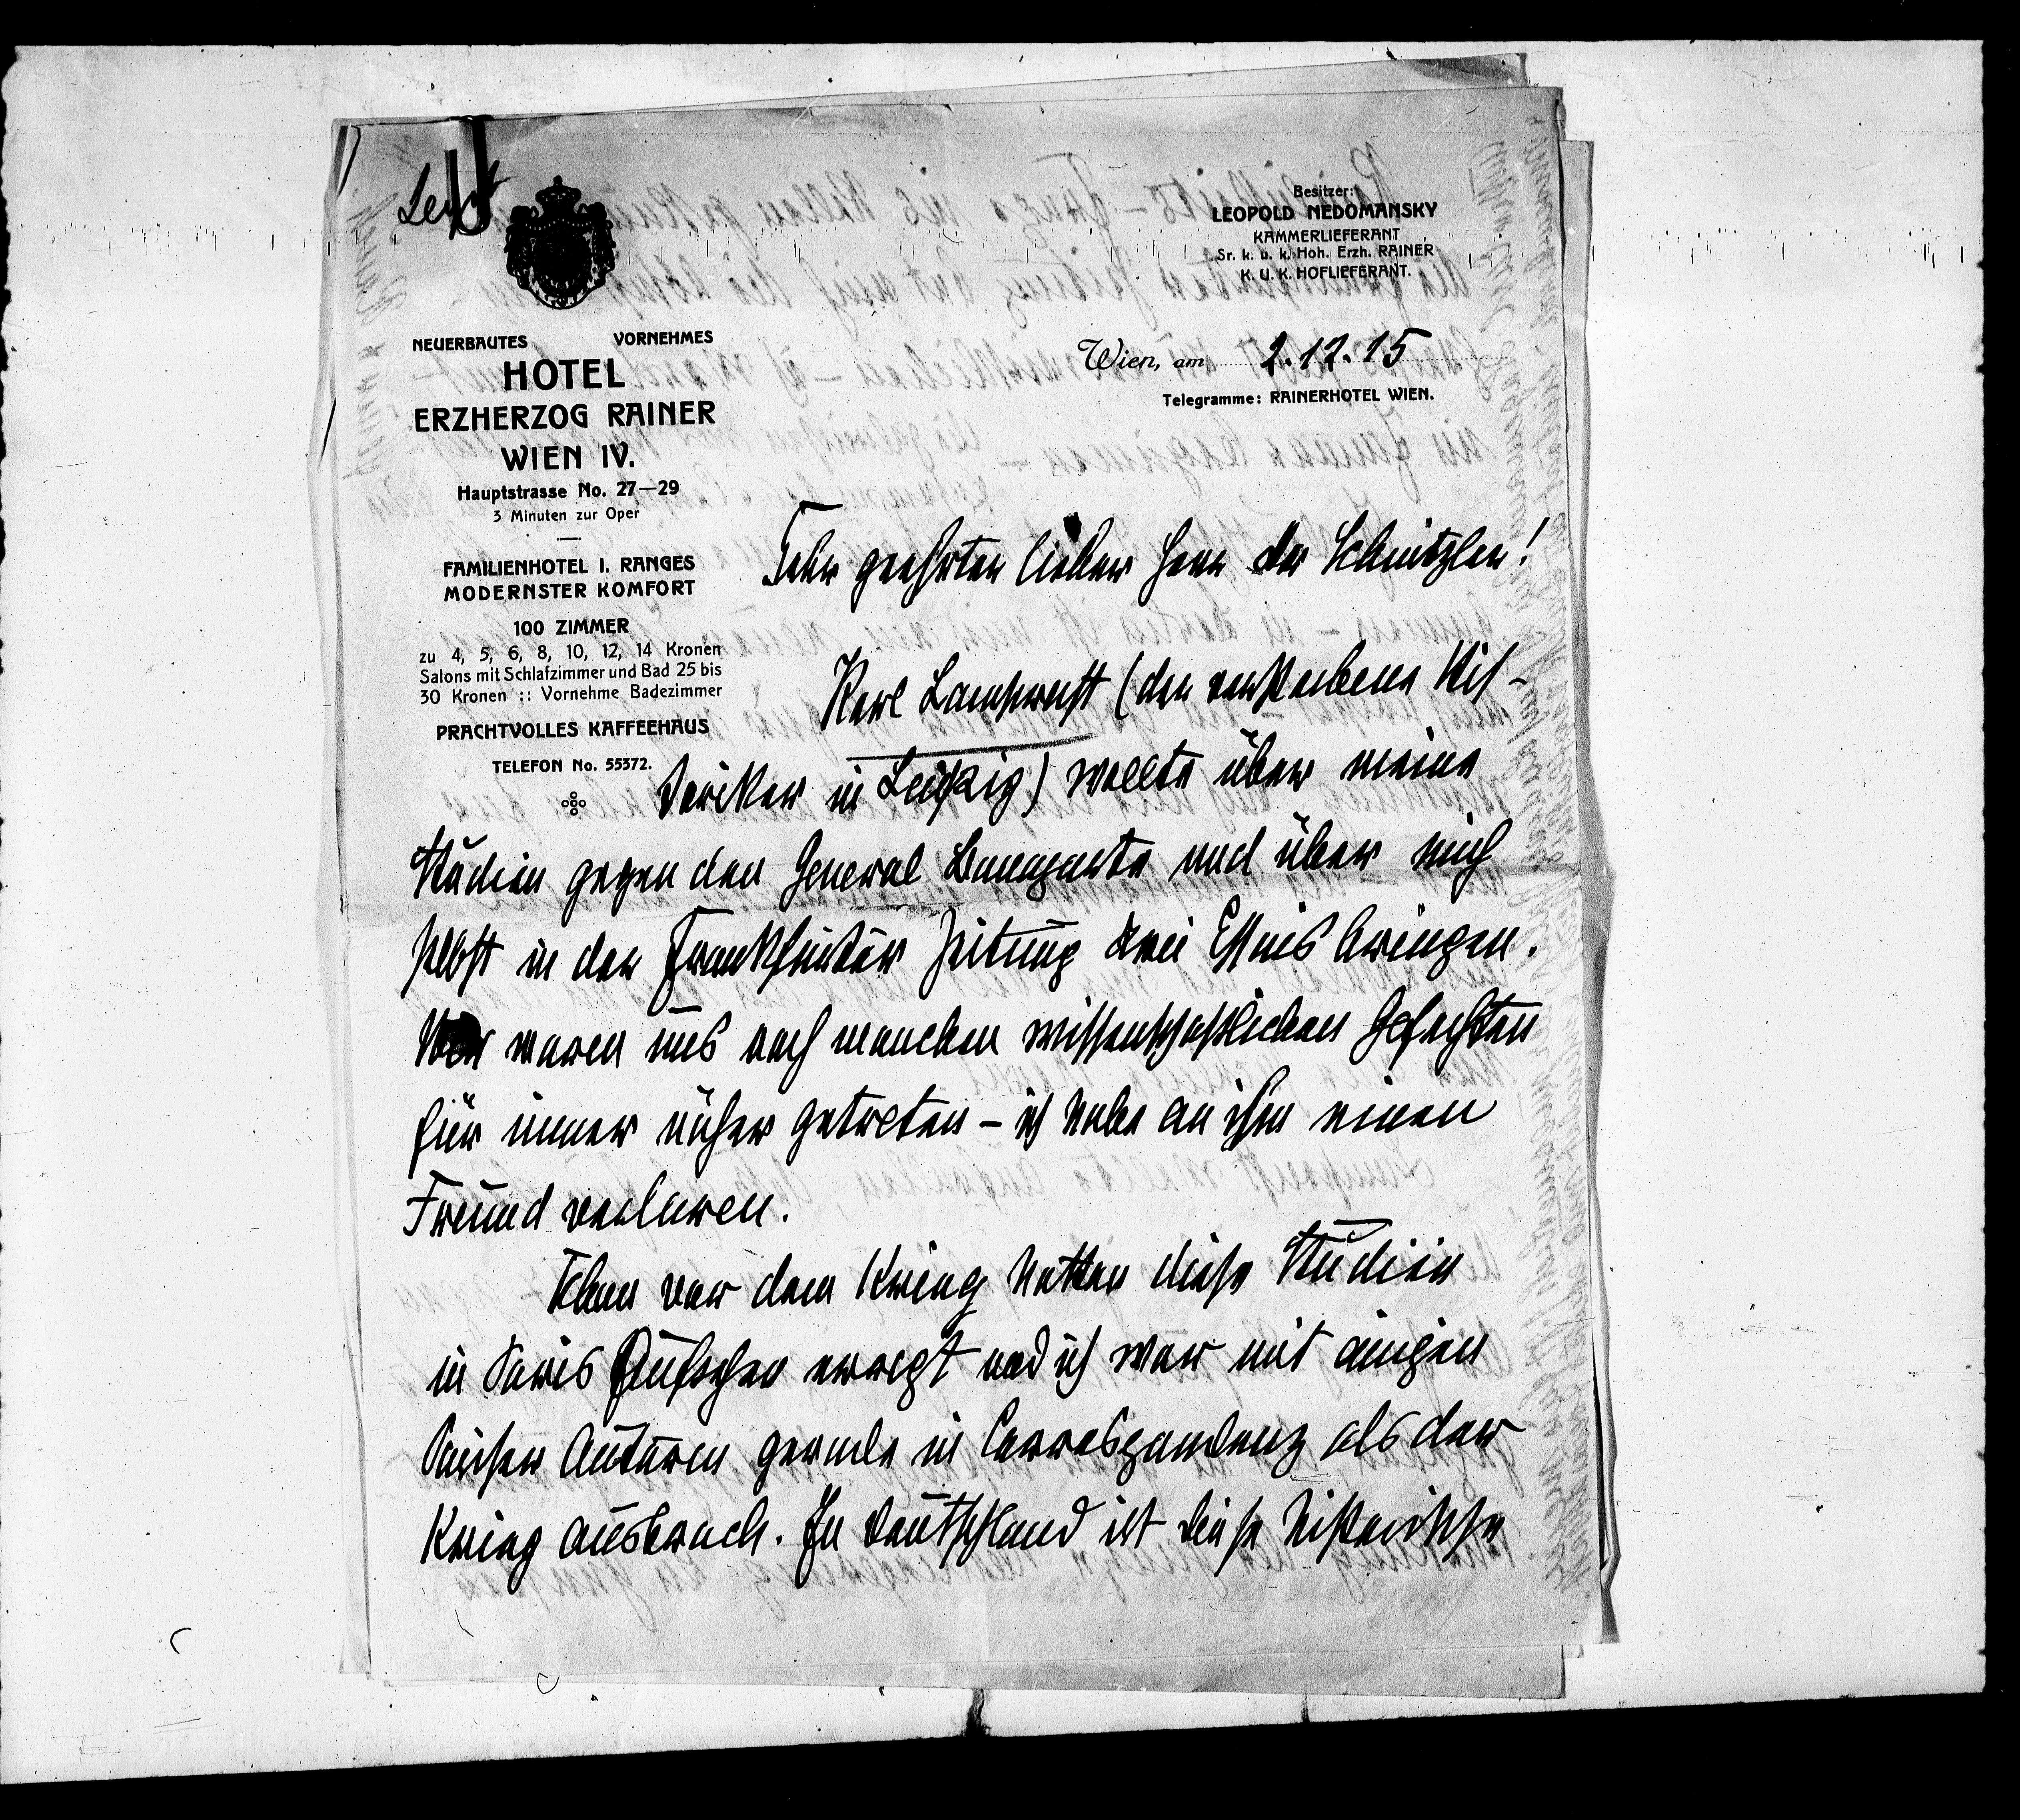 Besitzer:
LEOPOLD NEDOMANSKY
KAMMERLIEFERANT
Sr. k. u. k. Hoh. Erzh. RAINER
K. U. K. HOFLIEFERANT.
NEUERBAUTES VORNEHMES
HOTEL
ERZHERZOG RAINER
WIEN IV.
Hauptstrasse No. 27—29
3 Minuten zur Oper
FAMILIENHOTEL I. RANGES
MODERNSTER KOMFORT
100 ZIMMER
zu 4, 5, 6, 8, 10, 12, 14 Kronen
Salons mit Schlafzimmer und Bad 25 bis
30 Kronen :: Vornehme Badezimmer
PRACHTVOLLES KAFFEEHAUS
TELEFON No. 55372.
Wien, am 2.12.15
Telegramme: RAINERHOTEL WIEN.
Sehr geehrter lieber Herr Dr Schnitzler!
Karl Lamprecht (der verstorbene His-
toriker in Leipzig) wollte über meine
Studien gegen den General Bonaparte und über mich
selbst in der Frankfurter Zeitung drei Essais bringen.
Wir waren uns nach manchen wissenschaftlichen Gefechten
für immer näher getreten – ich habe an ihm einen
Freund verloren.
Eben vor dem Krieg hatten diese Studien
in Paris Aufsehen erregt und ich war mit einigen
Pariser Autoren gerade in Correspondenz als der
Krieg ausbrach. In Deutschland ist diese historische